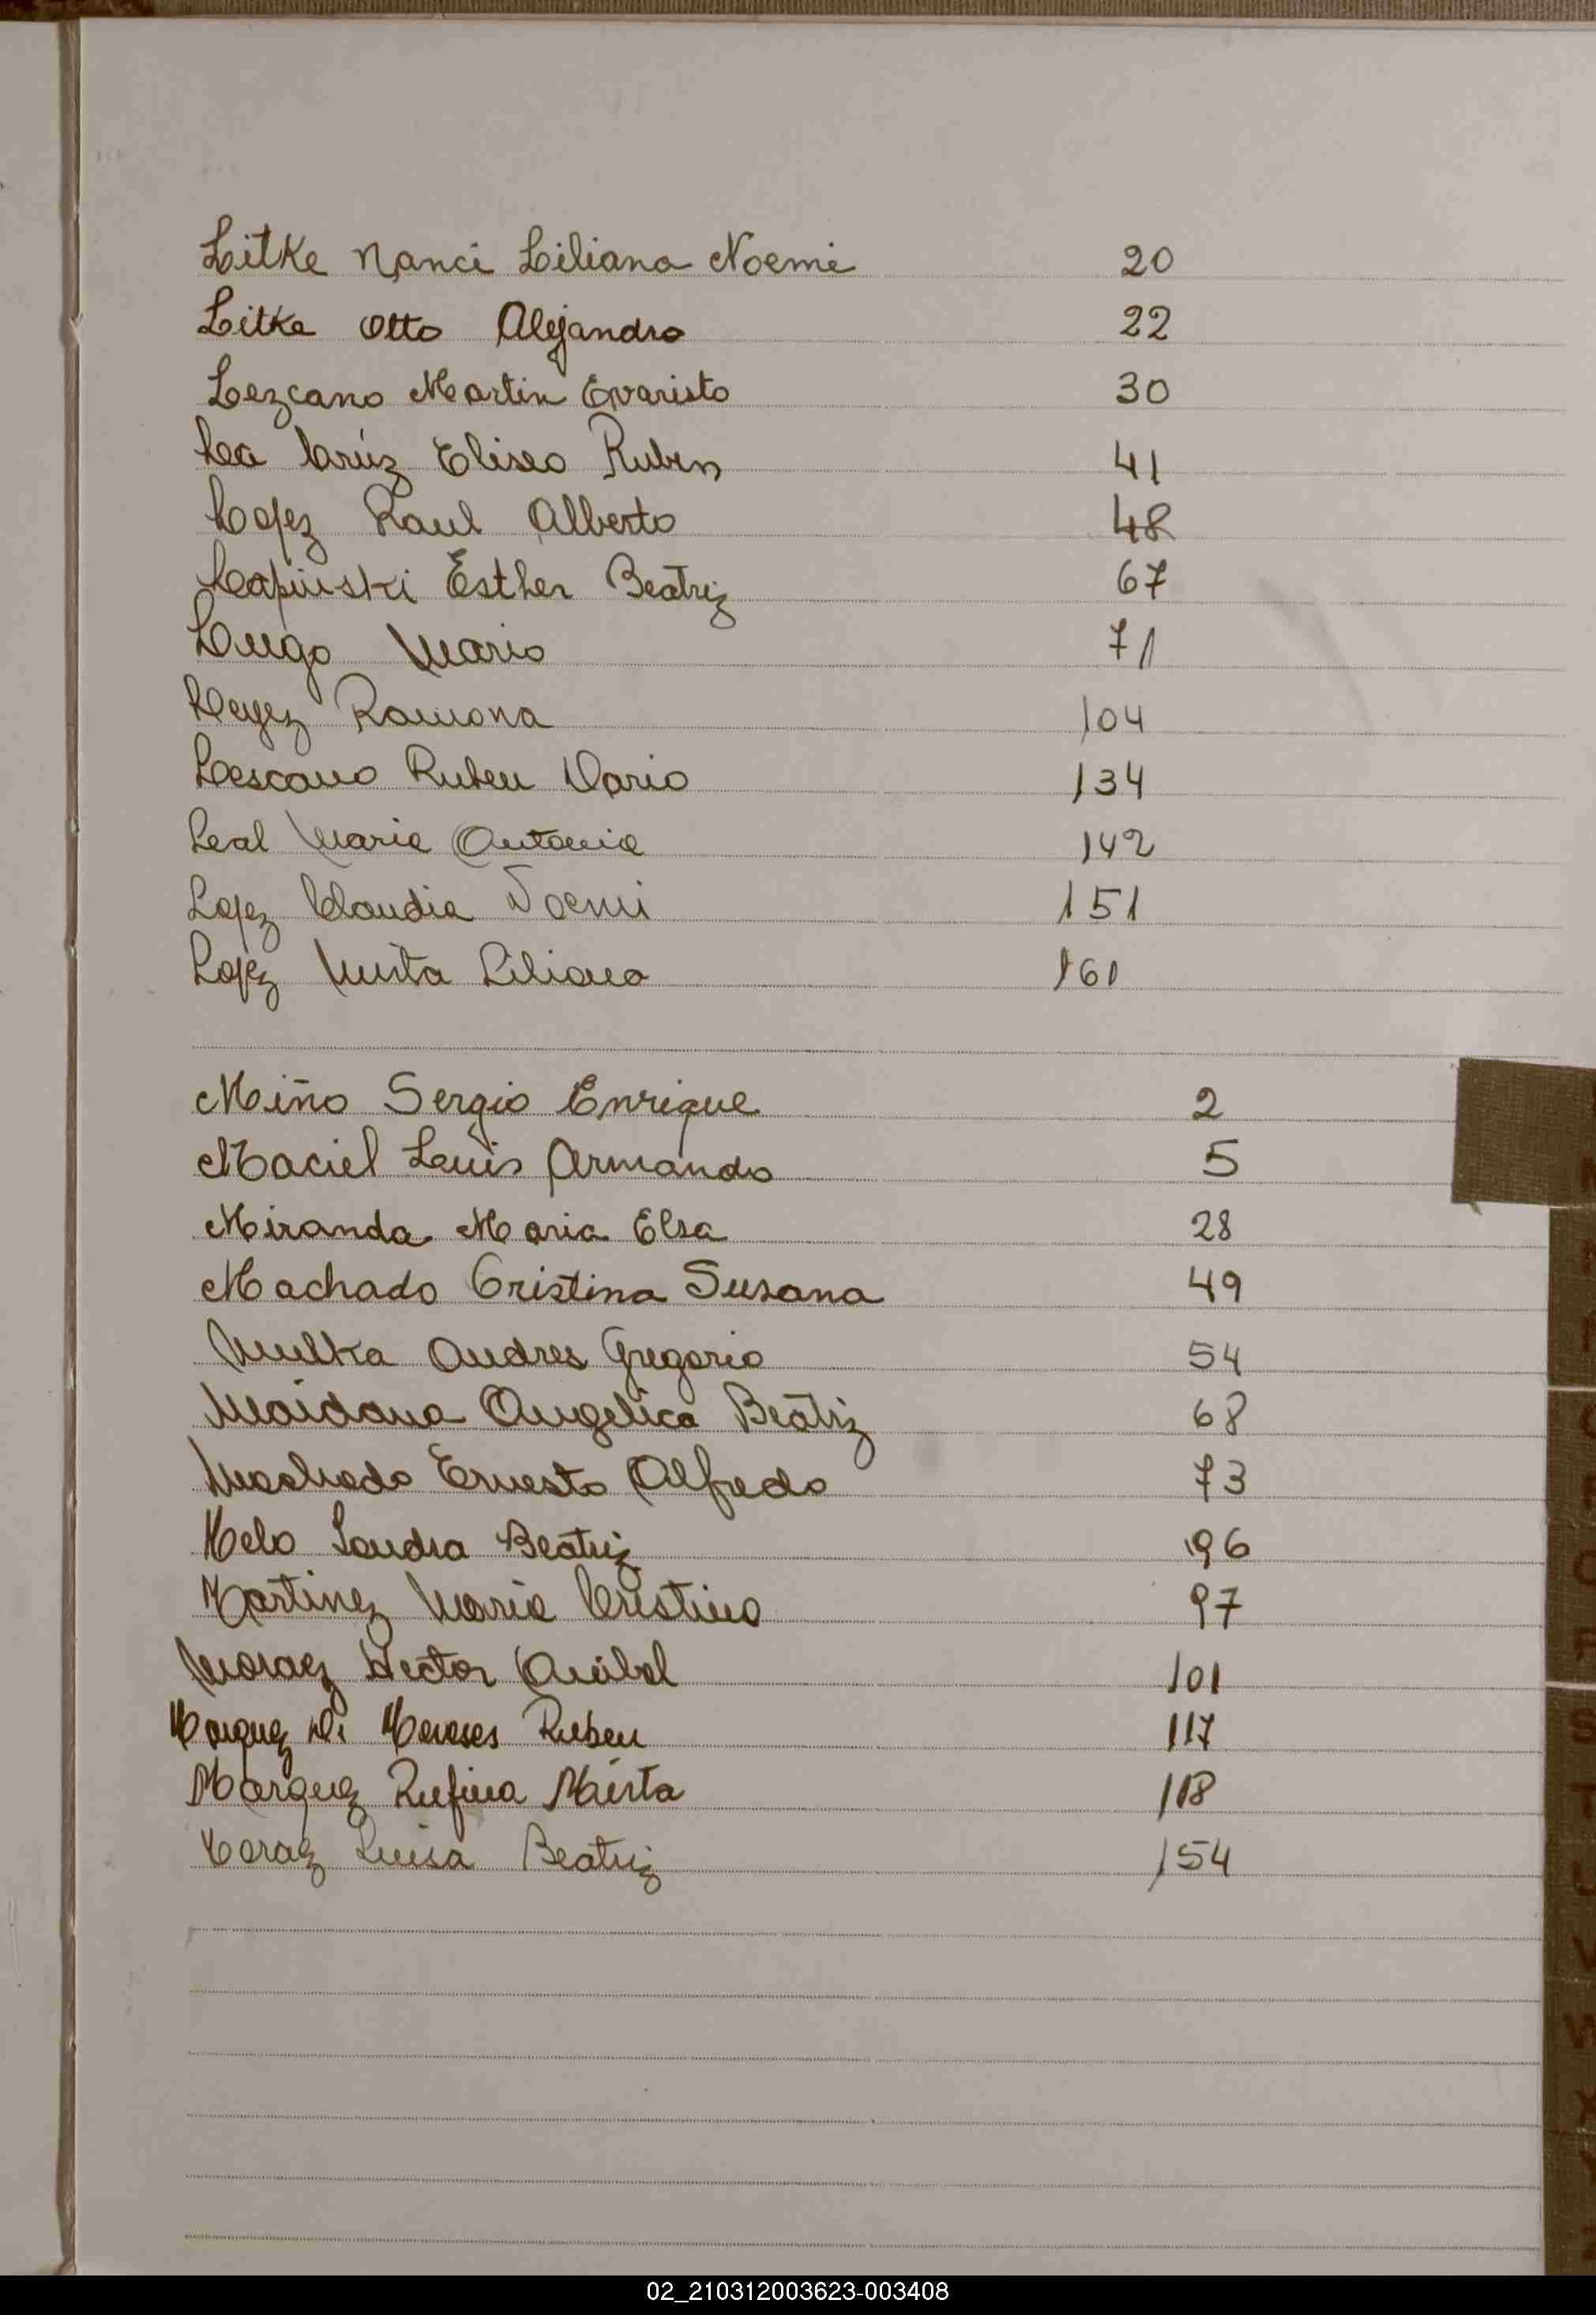 Litke Nanci Liliana Noemi 20
Litke Otto Alejandro 22
Lezcano Martin Evaristo 30
Lea Cruz Eliseo Ruben 41
Lopez Raul Alberto 48
Lapinski Esther Beatriz 67
Lugo Mario 71
Ramona 104
Lescano Ruben Dario 134
Leal Maria Antonia 142
Lopez Claudia Noemi 151
Lopez Mirta Liliana 161
Miño Sergio Enrique 2
Maciel Luis Armando 5
Miranda Maria Elsa 28
Machado Cristina Susana 49
Mulka Andres Gregorio 54
Maidana Angelica Beatriz 68
Machado Ernesto Alfredo 73
Melo Sandra Beatriz 96
Martinez Maria Cristina 97
Moraez Hector Anibal 101
Marquez Ruben 117
Marquez Rufina Mirta 118
Luisa Beatriz 154
02_210312003623-003408